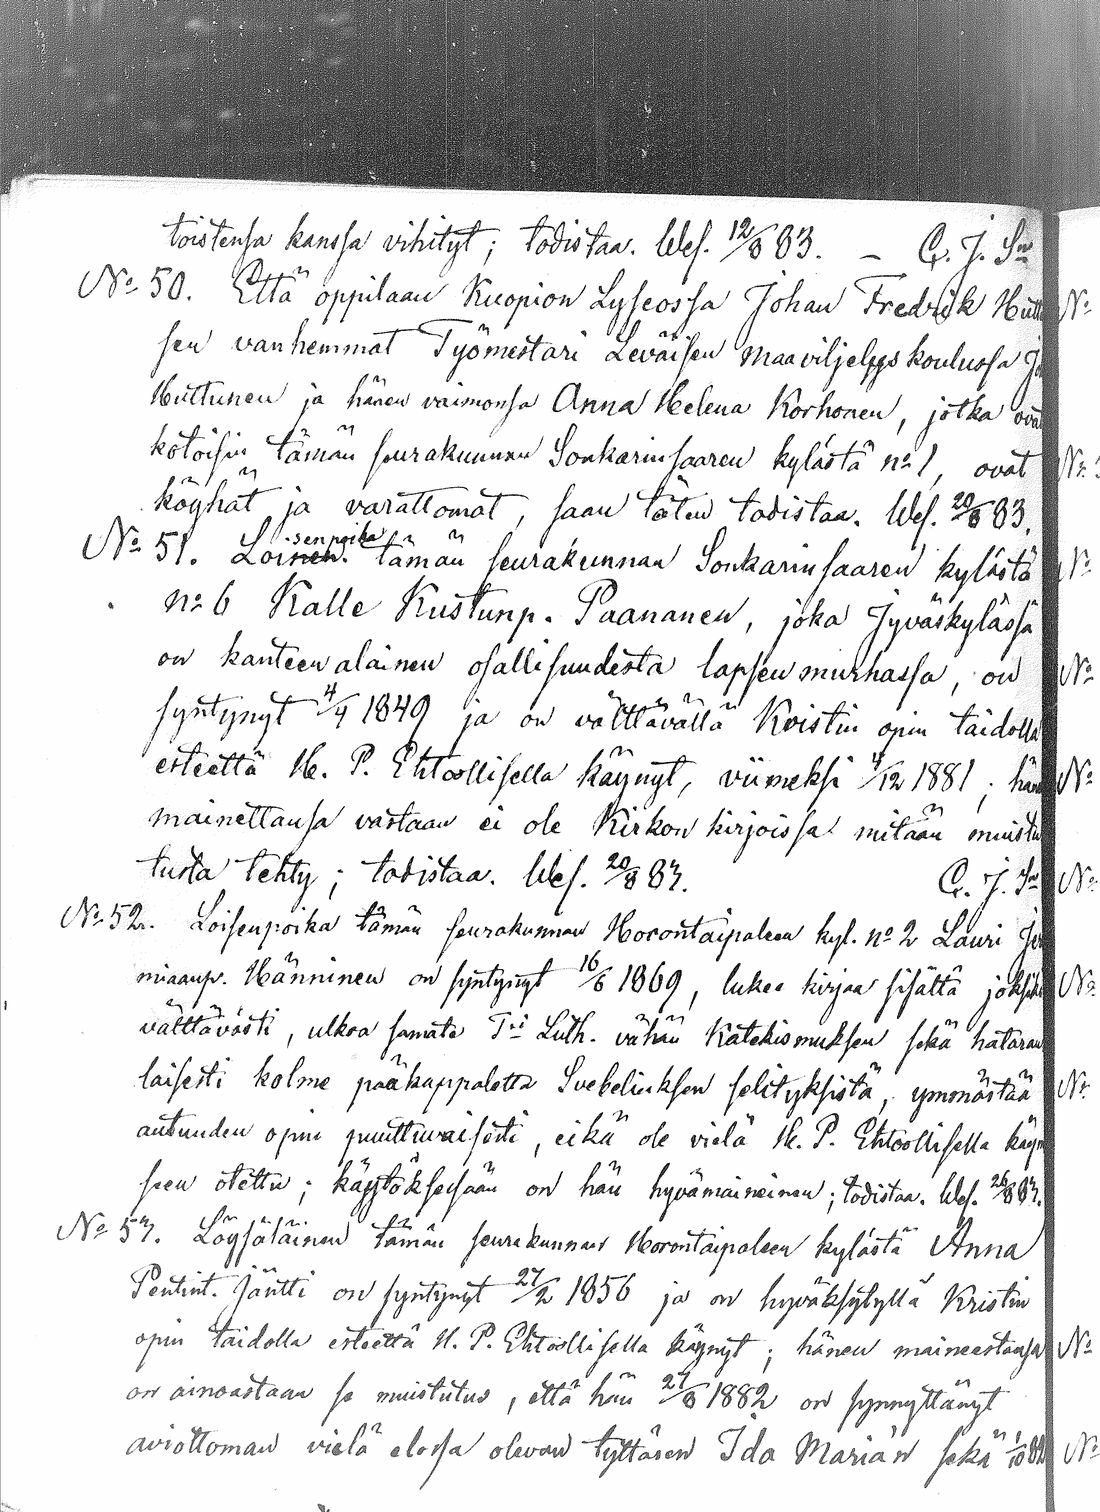 toistensa kanssa vihityt; todistaa. Wes. 12/8 83. – C. J. Sm
No 50. Että oppilaan Kuopion Lyseossa Johan Fredrik Hutt
sen vanhemmat Työmestari Leväisen maaviljelyskoulussa Jo
Huttunen ja hänen vaimonsa Anna Helena Korhonen, jotka ovat
kotoisin tämän seurakunnan Sonkarinsaaren kylästä no 1, ovat
köyhät ja varattomat, saan täten todistaa. Wes. 20/8 83.
No 51. Loisenpoika tämän seurakunnan Sonkarinsaaren kylästä
no 6 Kalle Kustunp. Paananen, joka Jyväskylässä
on kanteenalainen osallisuudesta lapsenmurhassa, on
syntynyt 4/4 1849 ja on välttävällä Kristin opin taidolla
esteettä H. P. Ehtoollisella käynyt, viimeksi 4/12 1881; hän
mainettansa vastaan ei ole Kirkonkirjoissa mitään muistu
tusta tehty; todistaa. Wes. 20/8 83. C. J. Sm
No 52. Loisenpoika tämän seurakunnan Horontaipaleen kyl. no 2 Lauri Jere
miaanp. Hänninen on syntynyt 16/6 1869, lukee kirjaa sisältä joksikin
välttävästi, ulkoa samate Tri Luth. vähän Katekismuksen sekä hataran
laisesti kolme pääkappaletta Svebeliuksen selityksistä, ymmärtää
autuuden opin puuttuvaisesti, eikä ole vielä H. P. Ehtoollisella käym
seen otettu; käytöksessään on hän hyvämaineinen; todistaa. Wes. 26/8 83.
No 53. Löysäläinen tämän seurakunnan Horontaipaleen kylästä Anna
Pentint. Jäntti on syntynyt 27/2 1856 ja on hyväksytyllä Kristin
opin taidolla esteettä H. P. Ehtoollisella käynyt; hänen maineestansa
on ainoastaan se muistutus, että hän 27/8 1882 on synnyttänyt
aviottoman vielä elossa olevan tyttären Ida Maria'n sekä 1/10 82